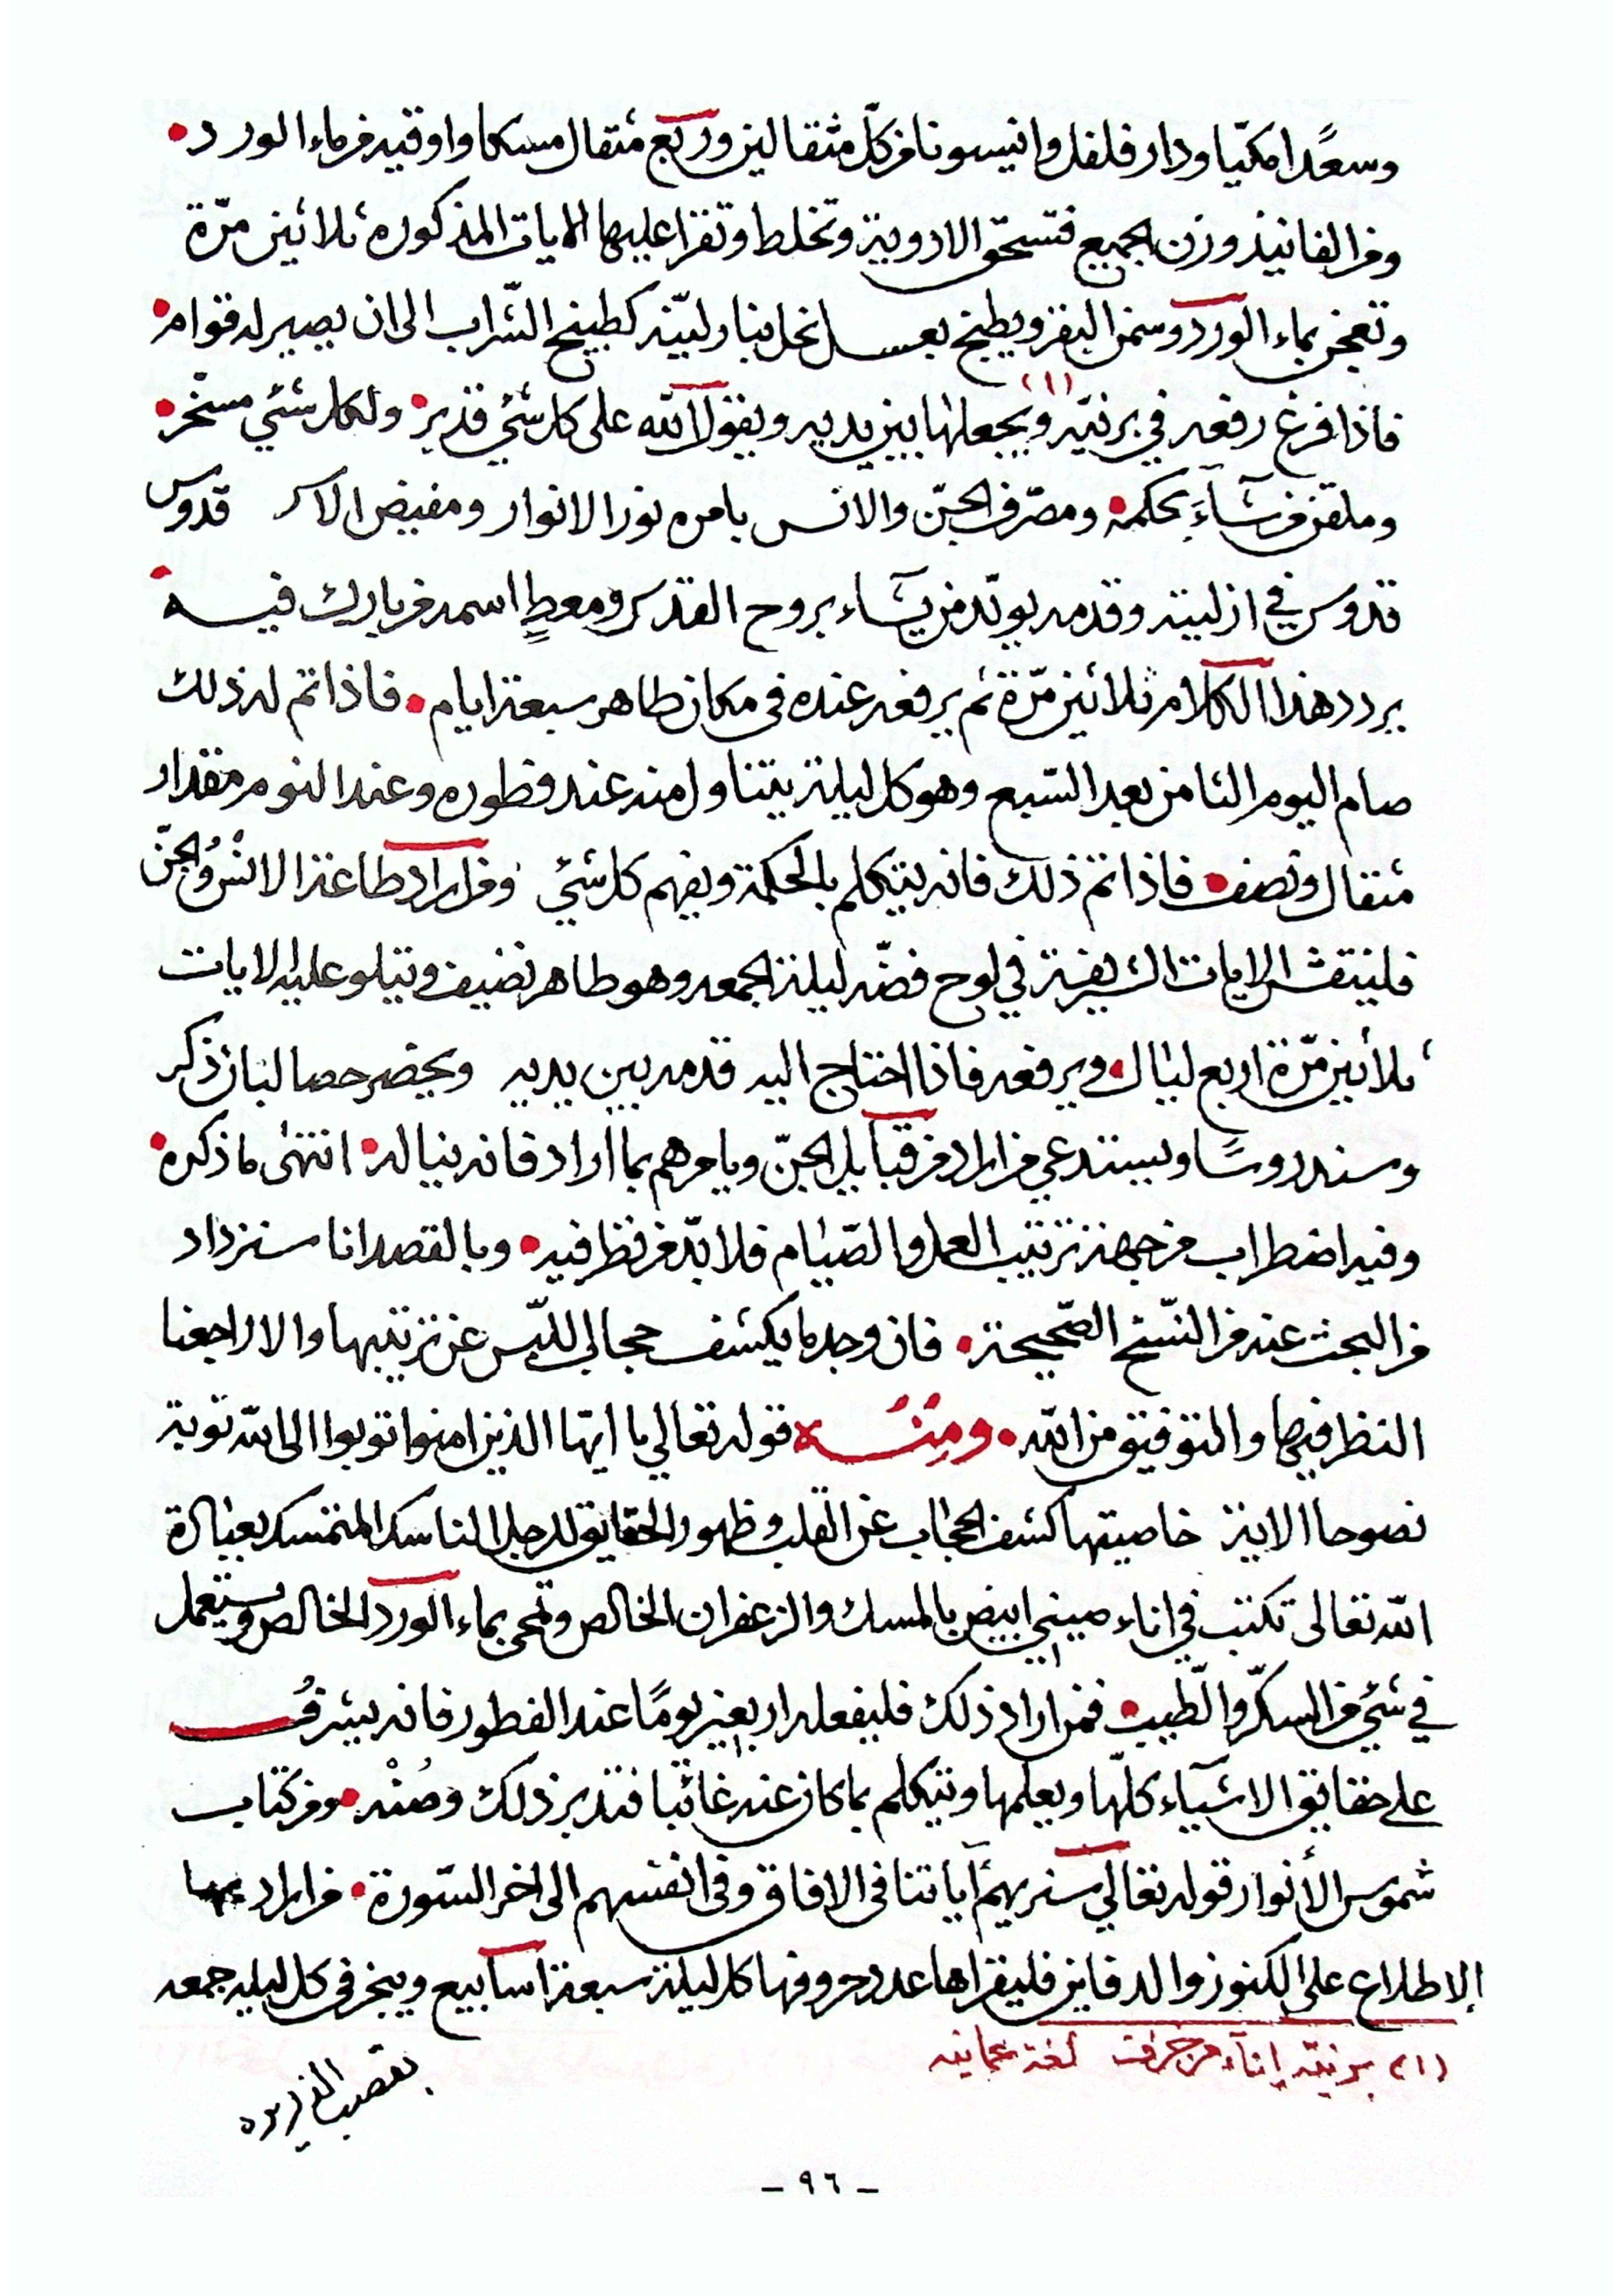 وسعدًا مكيّا ودار فلفل وانيسونا من كلّ مثقالين وربع مثقال مسكا واوقيه من ماء الورد •
ومن الفانيذ وزن الجميع فتسحق الادوية وتخلط وتقرا عليها الايات المذكوره ثلاثين مرّة
وتعجن بماء الورد وسمن البقر ويطبخ بعسل نحل بنار ليّنه كطبيخ الشّراب الى ان يصير له قوام •
فاذا فرغ رفعه في برنيّه (١) ويجعلها بين يديه ويقول الله على كل شئي قدير • ولكل شئي مسخّر •
وملقن من شآء بحكمه • ومصرّف الجنّ والانس بامره نور الانوار ومفيض الا قدوس
قدوس في ازليته وقدمه يويّد من يشآء بروح القدس ومعطٍ اسمه من يبارك فيه
يردد هذا الكلام ثلاثين مرّة ثم يرفعه عنده في مكان طاهر سبعة ايام • فاذا تم له ذلك
صام اليوم الثامن بعد السّبع وهو كل ليلة يتناول منه عند فطوره وعند النوم مقدار
مثقال ونصف • فاذا تم ذلك فانه يتكلم بالحكمة ويفهم كل شئي ومن اراد طاعة الانس والجنّ
فلينقش الايات الشريفة في لوح فضّه ليلة الجمعه وهو طاهر نضيف ويتلو عليه الايات
ثلاثين مّرة اربع ليال • ويرفعه فاذا احتاج اليه قدمه بين يديه ويحضر حصا لبان ذكر
وسندروسًا ويستدعي من اراد من قبآيل الجنّ ويامرهم بما اراد فانه ينال له • انتهى ما ذكره •
وفيه اضطراب من جهة ترتيب العمل والصّيام فلا بدّ من نظر فيه • وبالقصد انا سنزداد
من البحث عنه من النّسخ الصّحيحة • فان وجد ما يكشف حجال اللّبس عن ترتيبها والا راجعنا
النظر فيها والتوفيق من الله • ومِنْـه قوله تعالي يا ايّها الذين امنوا توبوا الى الله توبة
نصوحا الاية خاصيتها كشف الحجاب عن القلب وظهور الحقايق للرجل الناسك المتمسك بعبادة
الله تعالى تكتب في اناء صيني ابيض بالمسك والزعفران الخالص وتمحى بماء الورد الخالص ويستعمل
في شئي من السكّر والطّيب • فمن اراد ذلك فليفعله اربعين يومًا عند الفطور فانه يشرف
على حقايق الاشيآء كلّها ويعلمها ويتكلم بما كان عنه غائبًا فتدبر ذلك وصُنْه • ومن كتاب
شموس الأنوار قوله تعالي سنريهم آياتنا في الافاق وفي انفسهم الى اخر السّورة • من اراد بها
الاطلاع على الكنوز والدفاين فليقراها عدد حروفها كل ليلة سبعة اسآبيع ويبخر في كل ليله جمعه
(١) برنيّه إنآء من خزف لغة عمانيه
بقصب الذريره
ـ ٩٦ ـ